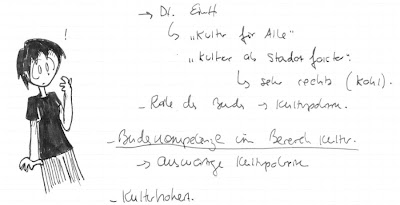 !
→ Dr.
↳ „Kultur für Alle"
„Kultur als Standortfaktor":
↳ sehr rechts (Kohl).
- Rolle des Bundes → Kulturpolitik.
- Bundeskompetenz im Bereich Kultur.
→ auswärtige Kulturpolitik
- Kulturhoheit.